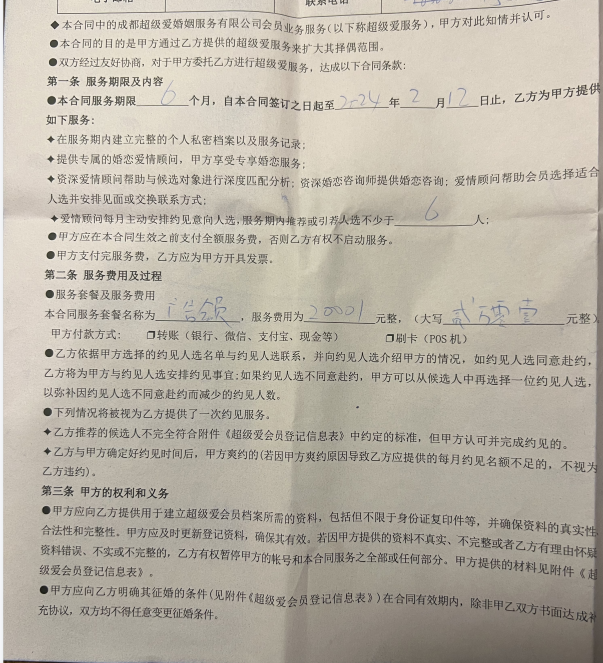 联系电话
◆本合同中的成都超级爱婚姻服务有限公司会员业务服务(以下称超级爱服务),甲方对此知情并认可。
●本合同的目的是甲方通过乙方提供的超级爱服务来扩大其择偶范围。
●双方经过友好协商,对于甲方委托乙方进行超级爱服务,达成以下合同条款:
第一条 服务期限及内容
●本合同服务期限 6 个月,自本合同签订之日起至 2024 年 2 月 12 日止,乙方为甲方提供
如下服务:
✦在服务期内建立完整的个人私密档案以及服务记录;
✦提供专属的婚恋爱情顾问,甲方享受专享婚恋服务;
✦资深爱情顾问帮助与候选对象进行深度匹配分析;资深婚恋咨询师提供婚恋咨询;爱情顾问帮助会员选择适合
人选并安排见面或交换联系方式;
✦爱情顾问每月主动安排约见意向人选,服务期内推荐或引荐人选不少于 6 人;
●甲方应在本合同生效之前支付全额服务费,否则乙方有权不启动服务。
●甲方支付完服务费,乙方应为甲方开具发票。
第二条 服务费用及过程
●服务套餐及服务费用
本合同服务套餐名称为 ,服务费用为 20001 元整,(大写 贰万零壹 元整)
甲方付款方式: ❒转账(银行、微信、支付宝、现金等) ❒刷卡(POS 机)
●乙方依据甲方选择的约见人选名单与约见人选联系,并向约见人选介绍甲方的情况,如约见人选同意赴约,
乙方将为甲方与约见人选安排约见事宜;如果约见人选不同意赴约,甲方可以从候选人中再选择一位约见人选,
以弥补因约见人选不同意赴约而减少的约见人数。
●下列情况将被视为乙方提供了一次约见服务。
✦乙方推荐的候选人不完全符合附件《超级爱会员登记信息表》中约定的标准,但甲方认可并完成约见的。
✦乙方与甲方确定好约见时间后,甲方爽约的(若因甲方爽约原因导致乙方应提供的每月约见名额不足的,不视为
乙方违约)。
第三条 甲方的权利和义务
●甲方应向乙方提供用于建立超级爱会员档案所需的资料,包括但不限于身份证复印件等,并确保资料的真实性
合法性和完整性。甲方应及时更新登记资料,确保其有效。若因甲方提供的资料不真实、不完整或者乙方有理由怀疑
资料错误、不实或不完整的,乙方有权暂停甲方的帐号和本合同服务之全部或任何部分。甲方提供的材料见附件《超
级爱会员登记信息表》。
●甲方应向乙方明确其征婚的条件(见附件《超级爱会员登记信息表》)在合同有效期内,除非甲乙双方书面达成补
充协议,双方均不得任意变更征婚条件。